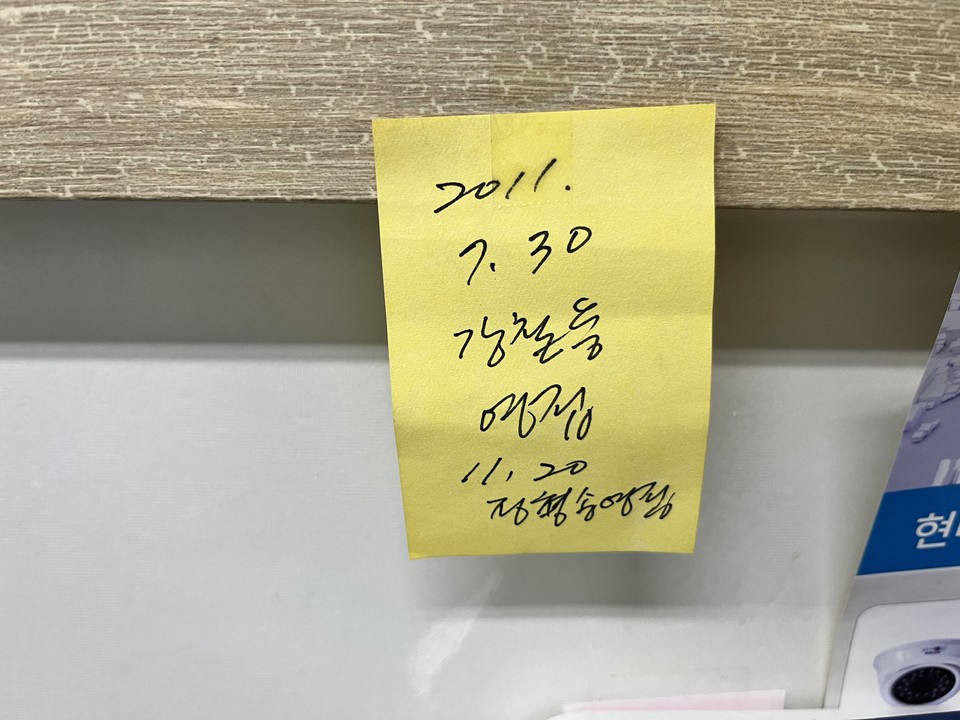 2011.
7. 30
강철등
영점
11. 20
정형송영점
현